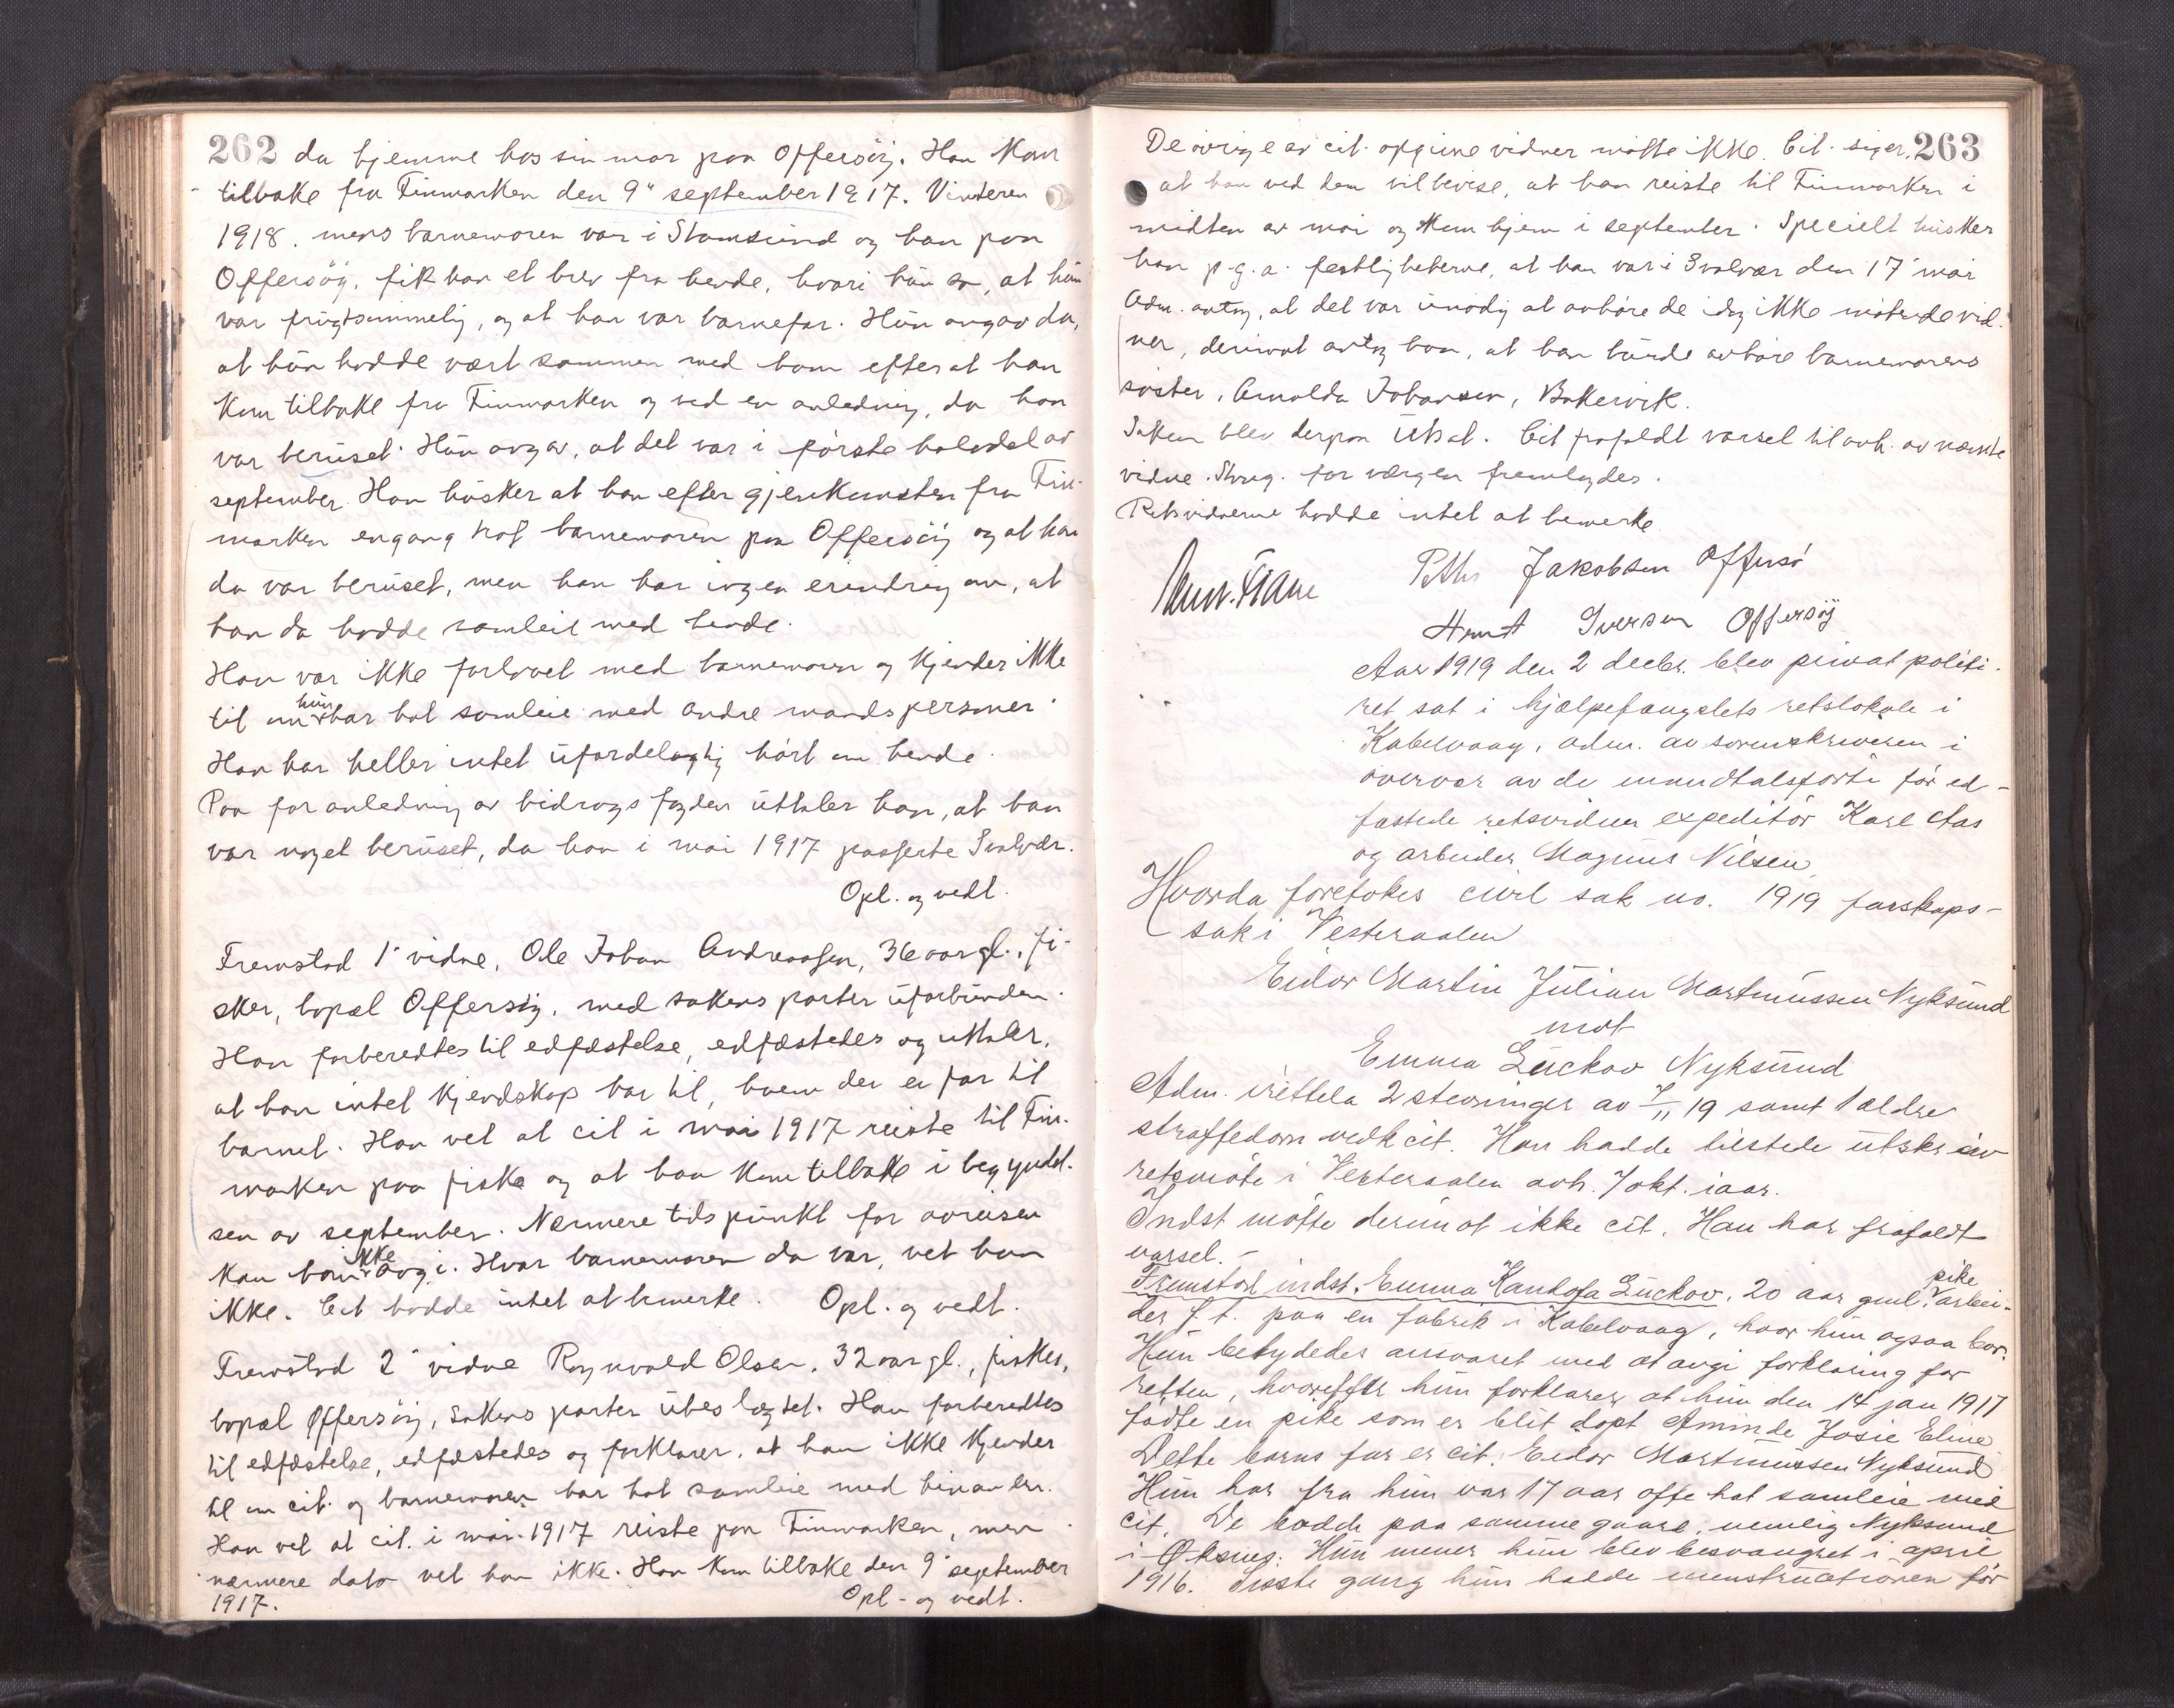 262 da hjemme hos sin mor paa Offersøy. Han kom
tilbake fra Finmarken den 9' september 1917. Vinteren
1918. mens barnemoren var i Stamsund og han paa
Offersøy, fik han et brev fra hende, hvori hun sa, at hun
var frugtsommelig, og at han var barnefar. Hun angav da,
at hun hadde vært sammen med ham efter at han
kom tilbake fra Finmarken og ved en anledning, da han
var beruset. Hun angav, at det var i første halvdel av
september. Han husker at han efter gjenkomsten fra Fin-
marken engang traf barnemoren paa Offersøy og at han
da var beruset, men han har ingen erindring om, at
han da hadde samleie med hende.
Han var ikke forlovet med barnemoren og kjender ikke
til om hun har hat samleie med andre mandspersoner.
Han har heller intet ufordelagtig hørt om hende.
Paa foranledning av bidragsfogden uttaler han, at han
var noget beruset, da han i mai 1917 passerte Svolvær.
Opl. og vedt.
Fremstod 1' vidne, Ole Johan Andreassen, 36 aar gl., fi-
sker, bopæl Offersøy, med sakens parter uforbunden.
Han forberedtes til edfæstelse, edfæstedes og uttaler,
at han intet kjendskap har til, hvem der er far til
barnet. Han vet at cit i mai 1917 reiste til Fin-
marken paa fiske og at han kom tilbake i begyndel-
sen av september. Nærmere tidspunkt for avreisen
kan han ikke avgi. Hvor barnemoren da var, vet han
ikke. Cit hadde intet at bemerke. Opl. og vedt.
Fremstod 2' vidne Ragnvald Olsen, 32 aar gl., fisker,
bopæl Offersøy, sakens parter ubeslægtet. Han forberedtes
til edfæstelse, edfæstedes og forklarer, at han ikke kjender
til om cit. og barnemoren har hat samleie med hinanden.
Han vet at cit. i mai 1917 reiste paa Finmarken, men
nærmere dato vet han ikke. Han kom tilbake den 9' september
1917. Opl. og vedt.
De øvrige av cit. opgivne vidner møtte ikke. Cit. siger, 263
at han ved dem vil bevise, at han reiste til Finmarken i
midten av mai og kom hjem i september. Specielt husker
han p.g.a. festligheterne, at han var i Svolvær den 17' mai
Adm. antog, at det var unødig at avhøre de idag ikke møtende vid-
ner, derimot antog han, at han burde avhøre barnemorens
søster, Arnolda Johansen, Bakervik.
Saken blev derpaa utsat. Cit frafaldt varsel til avh. av nævnte
vidne. Skrog. for værgen fremlagdes.
Retsvidnerne hadde intet at bemerke
Peths Jakobsen Offersø
Iversen Offersøy
Aar 1919 den 2 decbr. blev privat politi-
ret sat i hjælpefængslets retslokale i
Kabelvaag, adm. av sorenskriveren i
overvær av de mandtalsførte før ed-
fæstede retsvidner expeditør Karl Aas
og arbeider Magnus Nilsen
Hvorda foretokes civil sak no. 1919 farskaps-
sak i Vesteraalen
Eidor Martin Julian Martinussen Nyksund
mot
Emma Lückov Nyksund
Adm. irettela 2 stevninger av 7/11 19 samt 1 ældre
straffedom vedk cit. Han hadde tilstede utskr. av
retsmøte i Vesteraalen avh. 7 okt. iaar.
Indst møtte derimot ikke cit. Han har frafaldt
varsel. -
Fremstod indst. Emma Lückov, 20 aar gml, pike arbei-
der f.t. paa en fabrik i Kabelvaag, hvor hun ogsaa bor.
Hun betydedes ansvaret med at avgi forklaring for
retten, hvorefter hun forklarer, at hun den 14 jan 1917
fødte en pike som er blit døpt Aminde Josie Eline
Dette barns far er cit. Eidor Martinussen Nyksund
Hun har fra hun var 17 aar ofte hat samleie med
cit. De bodde paa samme gaard, nemlig Nyksund
i Øksnes. Hun mener hun blev besvangret i april
1916. Sidste gang hun hadde menstruationen før